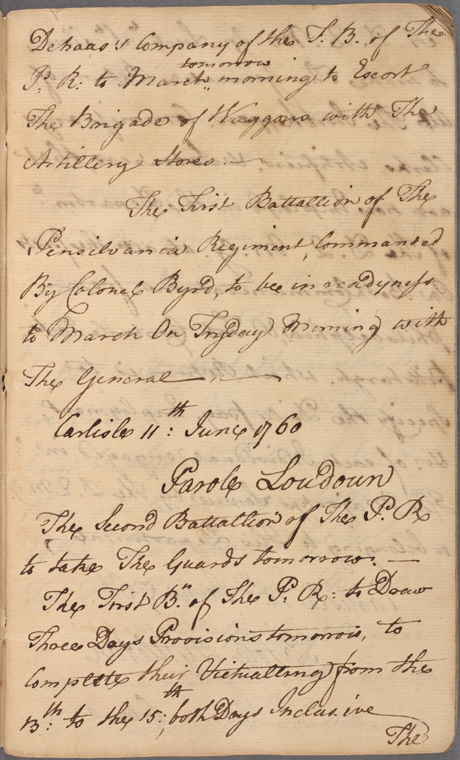 Dehaas's Company of the S. B. of The
P. R: to March tomorrow morning to Escort
The Brigade of Waggons with The
Artillery Stores. —
The First Battallion of The
Pensilvania Regiment, Commanded
By Colonel Byrd, to bee in readyness
to March On Fryday Morning with
The General —
Carlisle 11th: June 1760
Parole Loudoun
The Second Battallion of The P. R
to take The Guards tomorrow. —
The First Bn. of The P. R: to Draw
Three Days Provisions tomorrow, to
Complete their Victualling from the
13th: to the 15th; both Days Inclusive
The